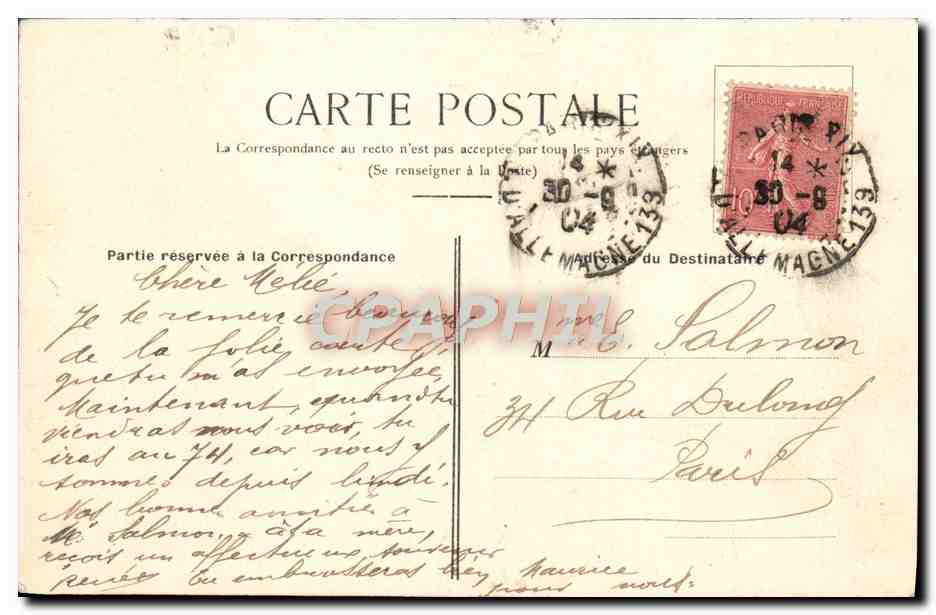 CARTE POSTALE
La Correspondance au recto n'est pas acceptée par tous les pays étrangers
(Se renseigner à la Poste)
REPUBLIQUE FRANÇAISE
10
PARIS XIX
14 *
30 -9
04
R. D'ALLEMAGNE 139
PARIS XIX
14 *
30 -9
04
R. D'ALLEMAGNE 139
Partie réservée à la Correspondance
Chère Mélie,
Je te remercie beaucoup
de la jolie carte
que tu m'as envoyée,
Maintenant, quand tu
viendras nous voir, tu
iras au 74, car nous y
sommes depuis lundi.
Nos bonne amitiés à
Mr Salmon, à ta mère,
reçois un affectueux souvenir
Renée tu embrasseras bien Maurice
pour nous.
CPAPHIL
Adresse du Destinataire
M me E. Salmon
34 Rue Dulong
Paris